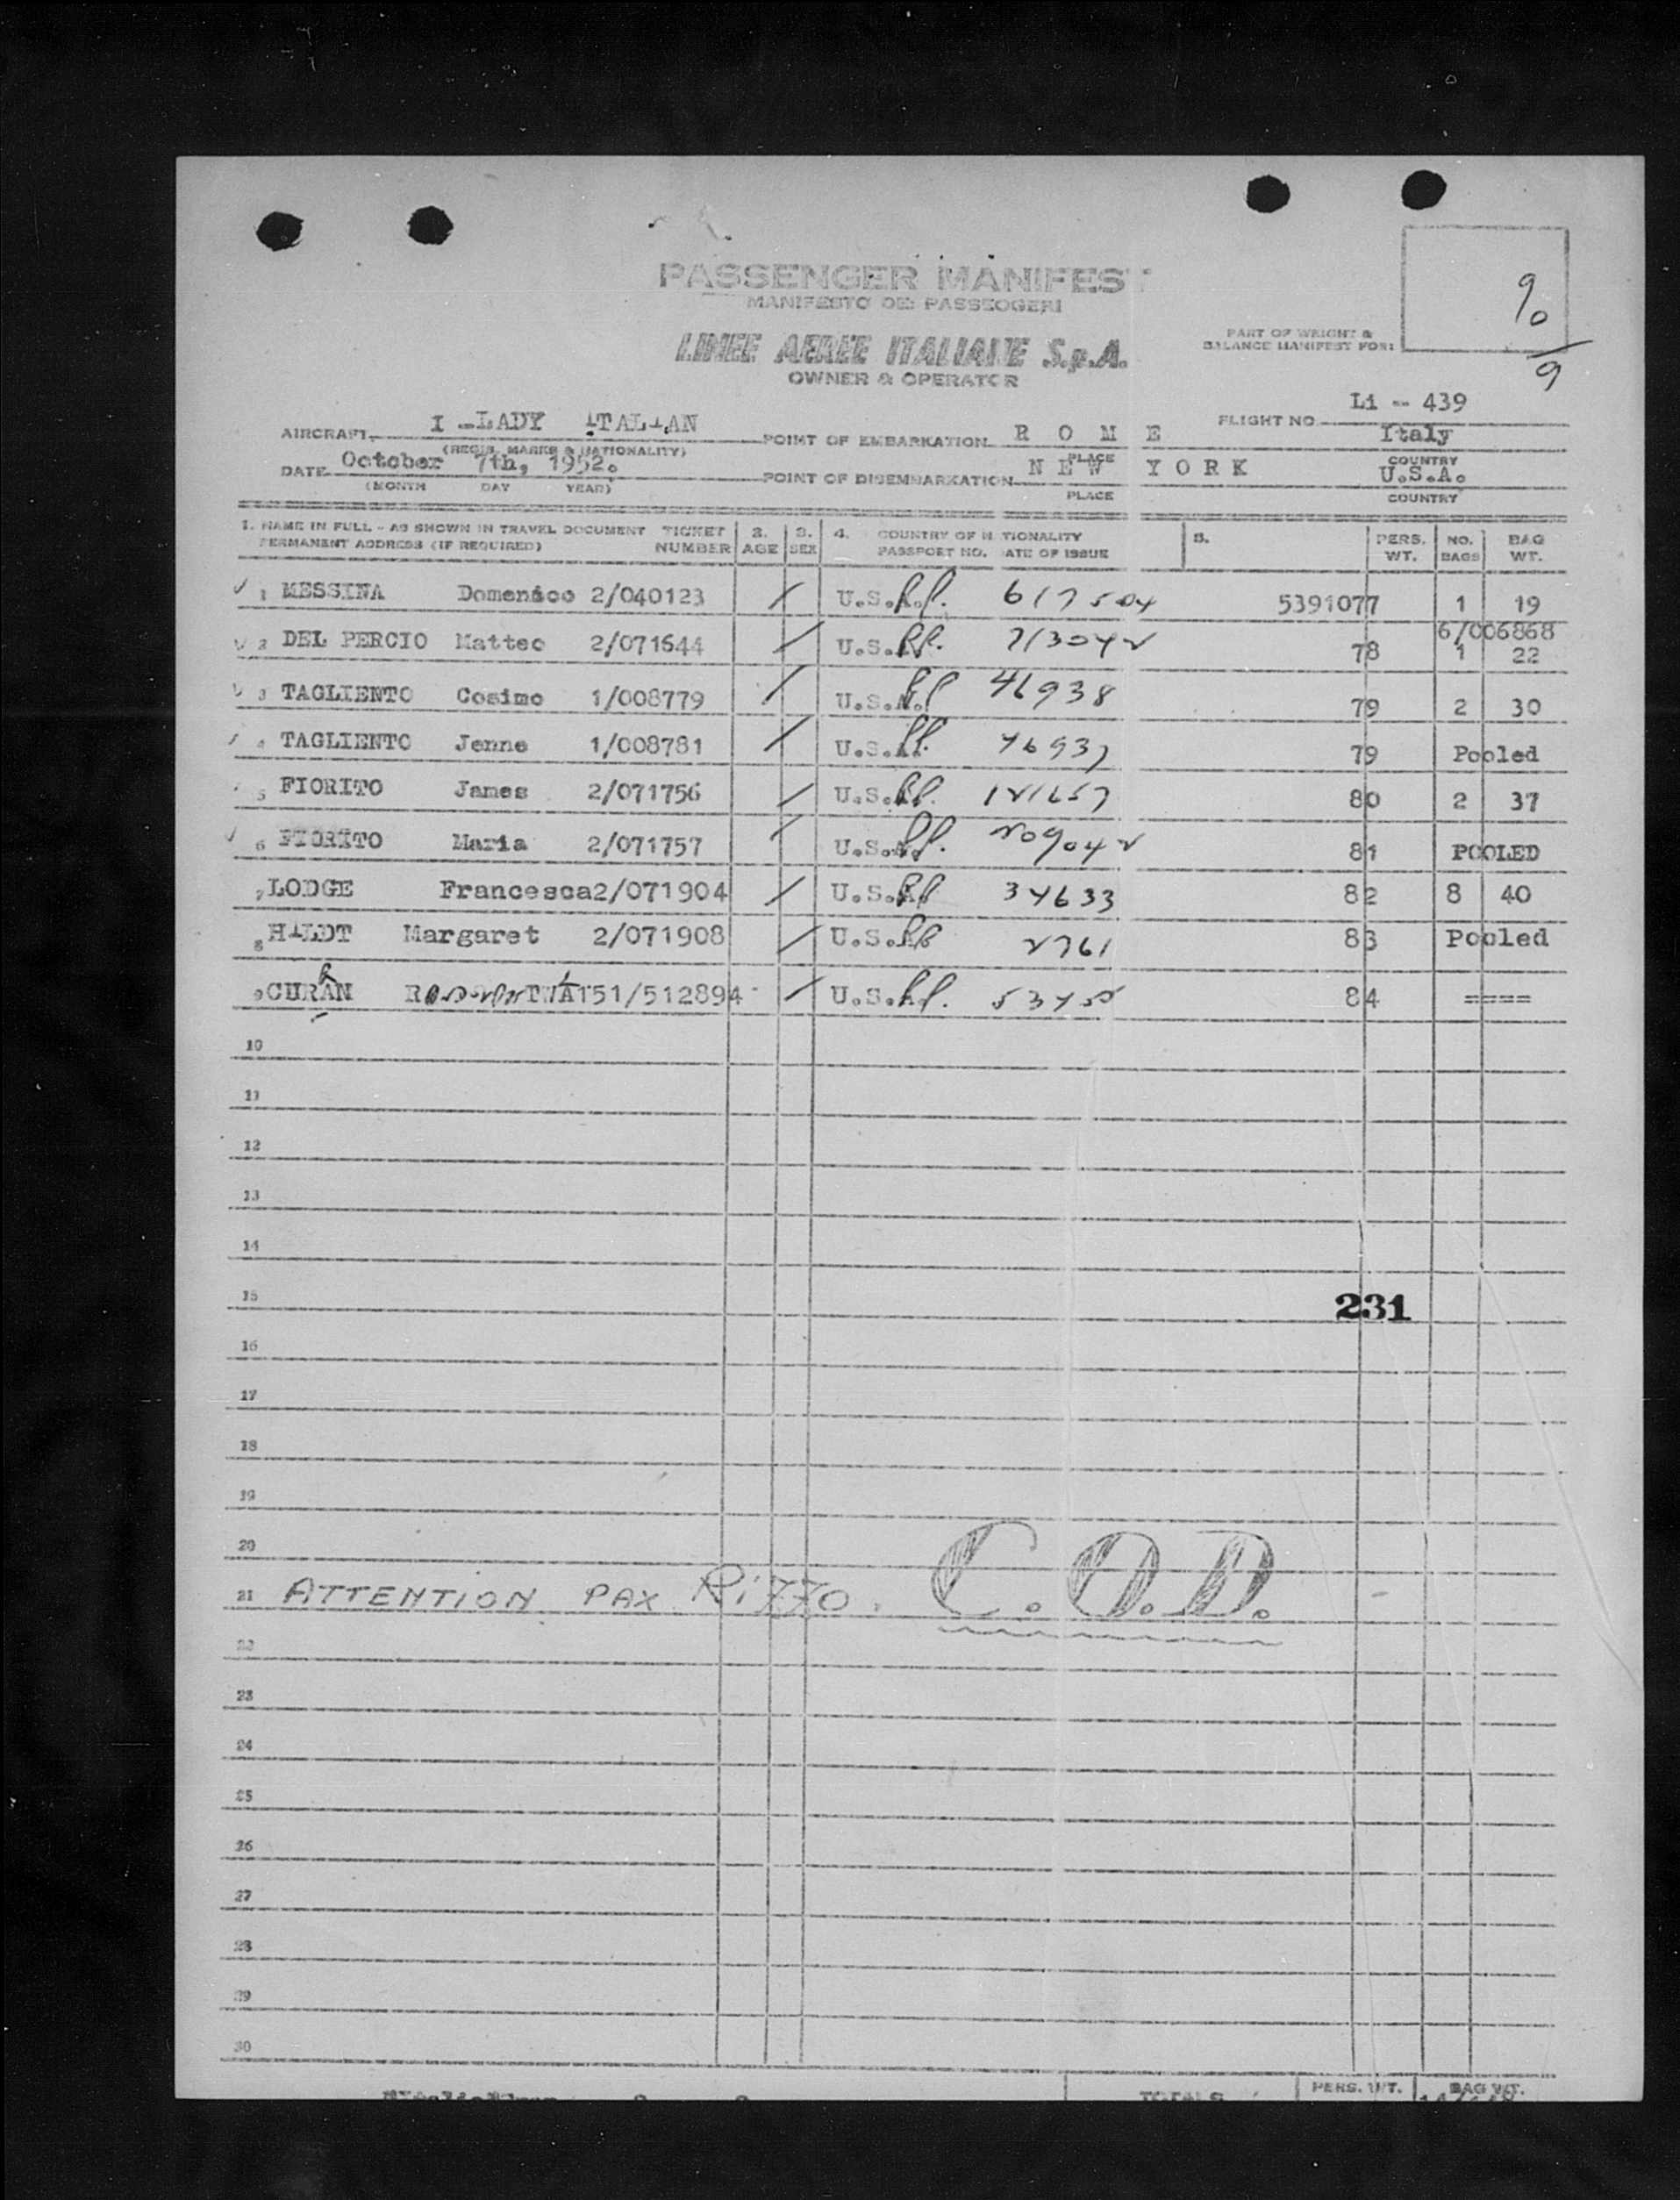 PASSENGER MANIFEST
MANIFESTO DEI PASSEGGERI
LINEE AEREE ITALIANE S.p.A.
OWNER & OPERATOR
PART OF WEIGHT &
BALANCE MANIFEST FOR:
9/0
9
AIRCRAFT I -LADY ITALIAN POINT OF EMBARKATION R O M E FLIGHT NO. Li - 439
(REGIS. MARKS & NATIONALITY) PLACE Italy COUNTRY
DATE October 7th, 1952. POINT OF DISEMBARKATION N E W Y O R K U.S.A.
(MONTH DAY YEAR) PLACE COUNTRY
1. NAME IN FULL - AS SHOWN IN TRAVEL DOCUMENT TICKET 2. 3. 4. COUNTRY OF NATIONALITY 5. PERS. NO. BAG
PERMANENT ADDRESS (IF REQUIRED) NUMBER AGE SEX PASSPORT NO. DATE OF ISSUE WT. BAGS WT.
1 MESSINA Domenico 2/040123 / U.S.A. 617504 5391077 1 19
6/006868
2 DEL PERCIO Matteo 2/071644 / U.S.A. 713042 78 1 22
3 TAGLIENTO Cosimo 1/008779 / U.S.A. 46938 79 2 30
4 TAGLIENTO Jenne 1/008781 / U.S.A. 46937 79 Pooled
5 FIORITO James 2/071756 / U.S.A. 121657 80 2 37
6 FIORITO Maria 2/071757 / U.S.A. 209042 81 POOLED
7 LODGE Francesca 2/071904 / U.S.A. 34633 82 8 40
8 HILDT Margaret 2/071908 / U.S.A. 2761 83 Pooled
9 CURRAN TWA 151/512894 / U.S.A. 84 ====
10
11
12
13
14
15 231
16
17
18
19
20
21 ATTENTION PAX Rizzo. C.O.D. -
22
23
24
25
26
27
28
29
30
TOTALS PERS. WT. BAG WT.